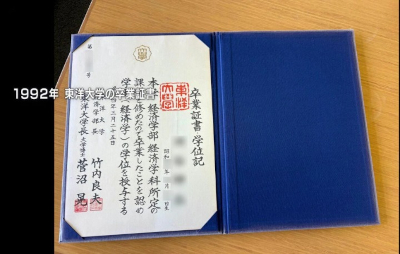 1992年 東洋大学の卒業証書
卒業証書 学位記
昭和 年 月 日
本学経済学部経済学科所定の
課程を修めたのを卒業したことを認め
学士(経済学)の学位を授与する
年三月二十五日
東洋大学
経済学部長 竹内良夫
東洋大学長 菅沼晃